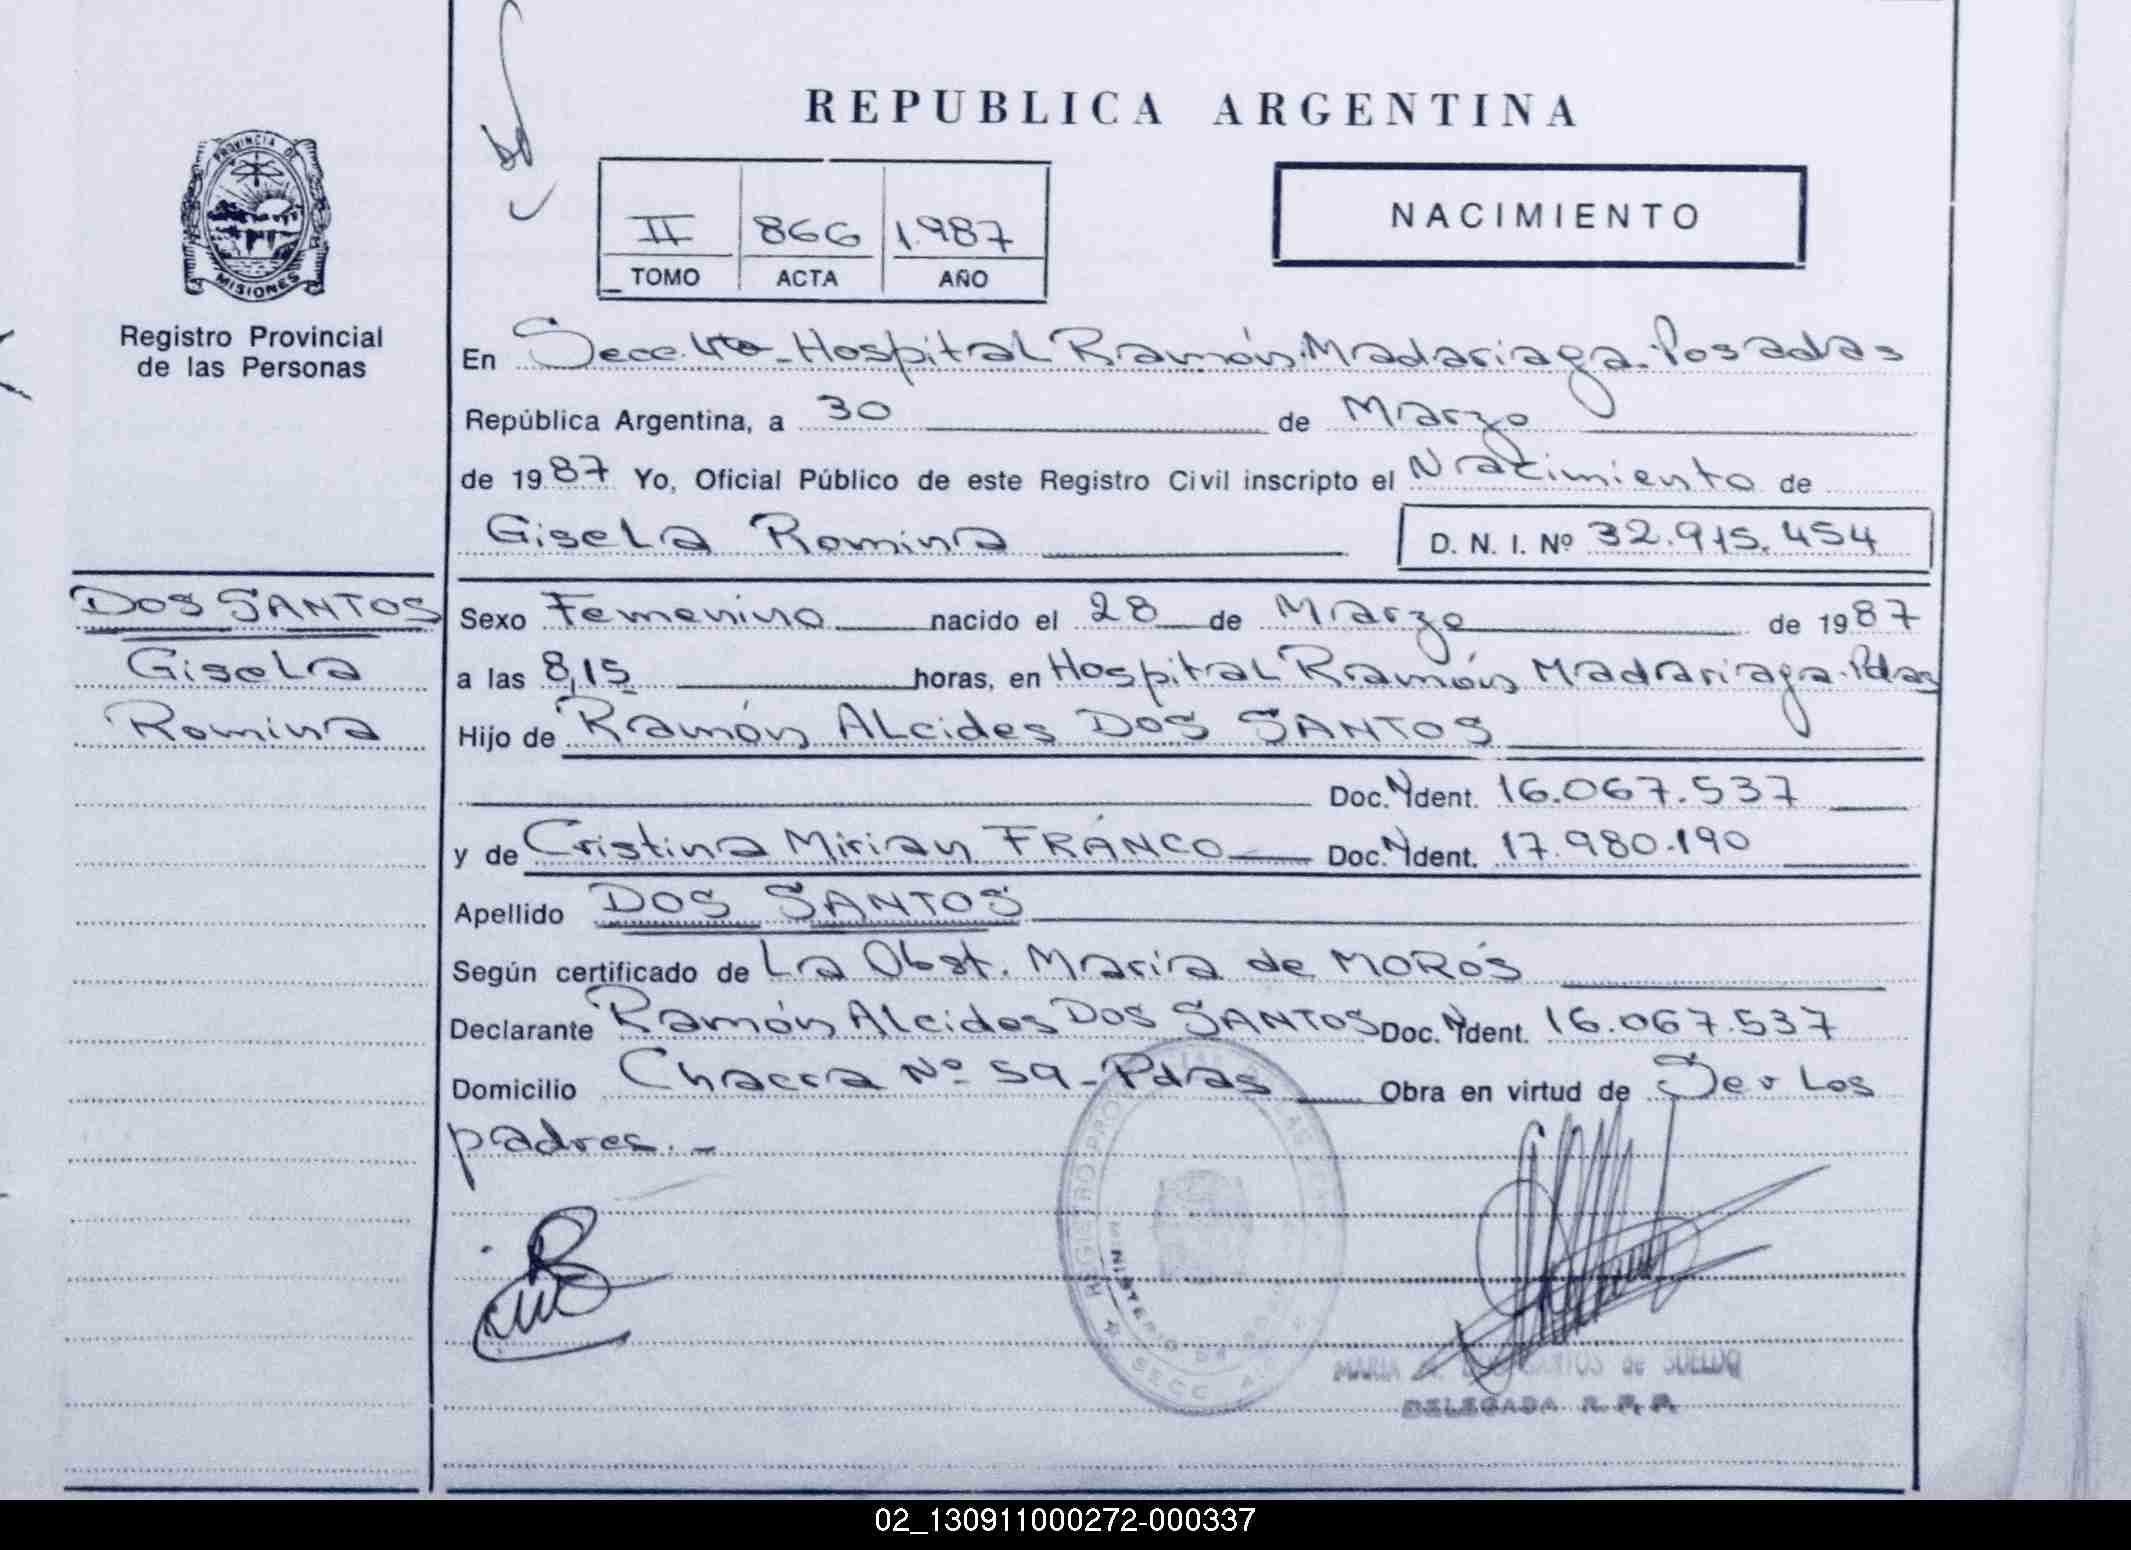 REPUBLICA ARGENTINA
PROVINCIA DE
MISIONES
Registro Provincial
de las Personas
II 866 1.987
TOMO ACTA AÑO
NACIMIENTO
En Secc. 4ta - Hospital Ramón Madariaga. Posadas
República Argentina, a 30 de Marzo
de 1987 Yo, Oficial Público de este Registro Civil inscripto el Nacimiento de
Gisela Romina D. N. I. Nº 32.915.454
DOS SANTOS
Gisela
Romina
Sexo Femenino nacido el 28 de Marzo de 1987
a las 8,15 horas, en Hospital Ramón Madariaga. Pdas
Hijo de Ramón Alcides DOS SANTOS
Doc. Ident. 16.067.537
y de Cristina Mirian FRANCO Doc. Ident. 17.980.190
Apellido DOS SANTOS
Según certificado de La Obst. María de MOROS
Declarante Ramón Alcides DOS SANTOS Doc. Ident. 16.067.537
Domicilio Chacra Nº 59 - Pdas Obra en virtud de Ser los
padres. -
REGISTRO
MINISTERIO DE
SECC.
MARIA de SUELDO
DELEGADA R. P. P.
02_130911000272-000337